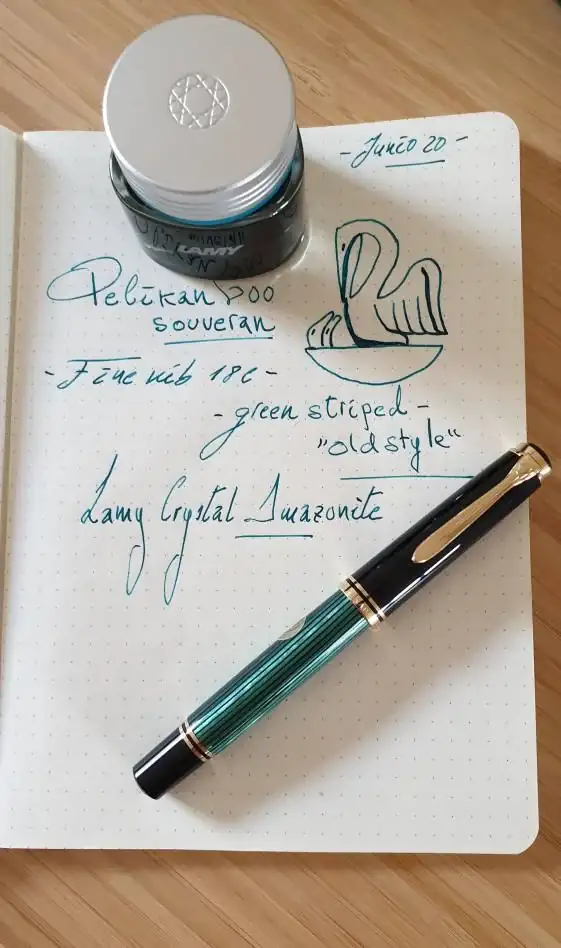 - Junio 20 -
LAMY
Pelikan 600
souverän
- Fine nib 18c -
- green striped -
"old style"
Lamy Crystal Amazonite